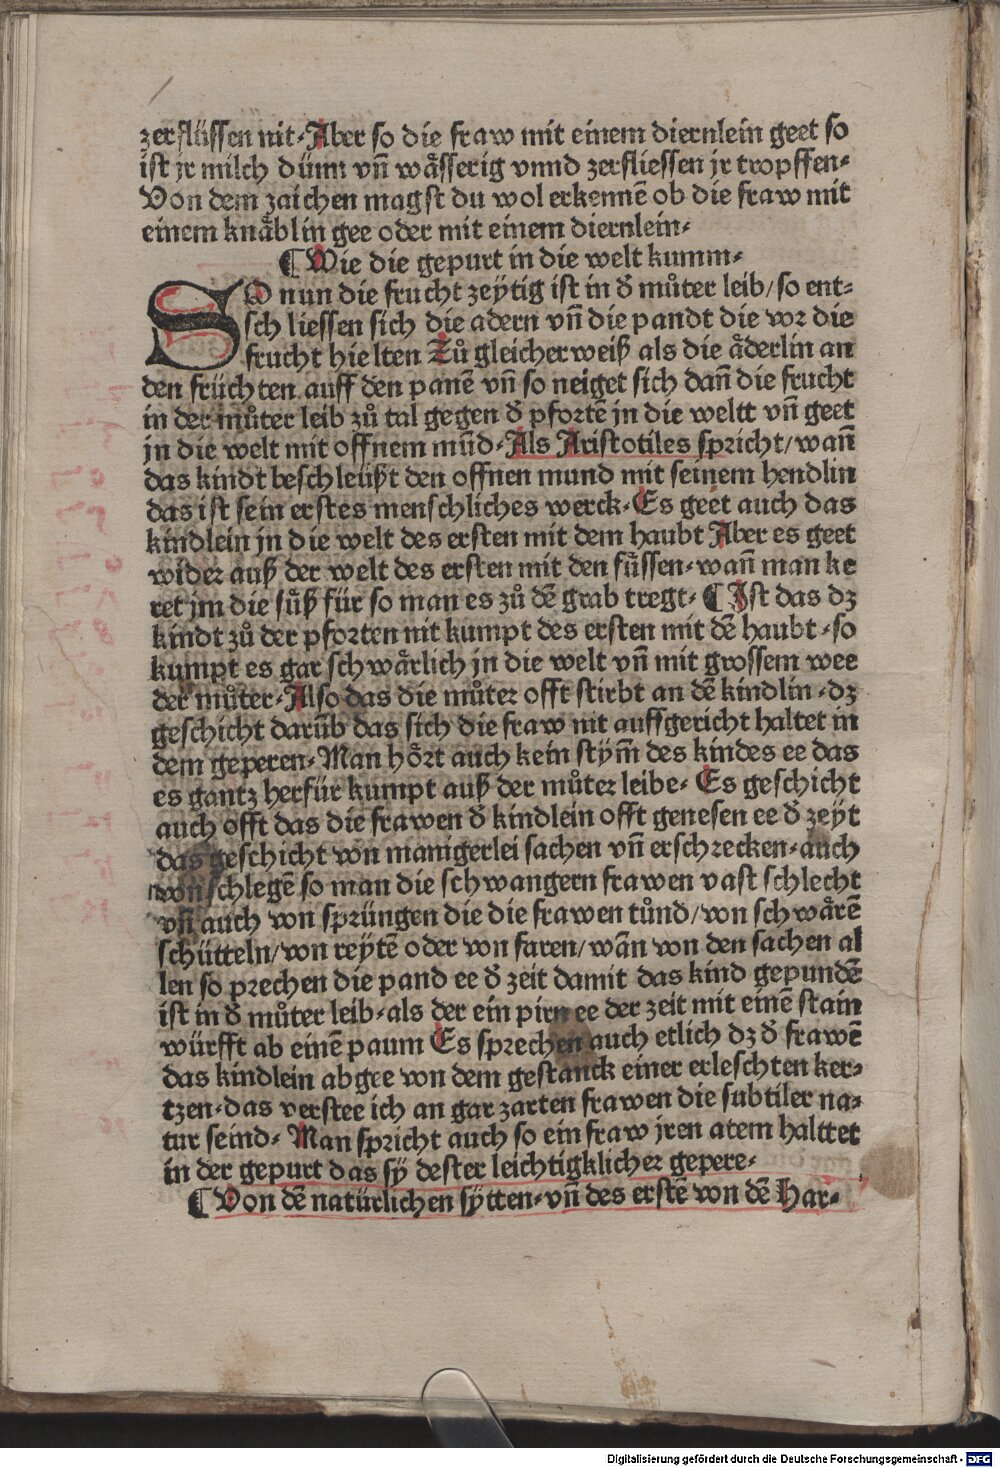 zerflüssen nit. Aber so die fraw mit einem diernlein geet so
ist jr milch dünn vñ wåsserig vnnd zerfliessen jr tropffen.
Von dem zaichen magst du wol erkennē ob die fraw mit
einem knåblin gee oder mit einem diernlein.
¶ Wie die gepurt in die welt kumm.
SO nun die frucht zeytig ist in d̕ můter leib/ so ent⸗
schliessen sich die adern vñ die pandt die vor die
frucht hielten Zů gleicherweiß als die åderlin an
den früchten auff den panē vñ so neiget sich dañ die frucht
in der můter leib zů tal gegen d̕ pforte jn die weltt vñ geet
jn die welt mit offnem mūd. Als Aristotiles spricht/ wañ
das kindt beschleüßt den offnen mund mit seinem hendlin
das ist sein erstes menschliches werck. Es geet auch das
kindlein jn die welt des ersten mit dem haubt Aber es geet
wider auß der welt des ersten mit den fůssen. wañ man ke
ret jm die fůß für so man es zů dē grab tregt. ¶ Ist das dz
kindt zů der pforten nit kumpt des ersten mit dē haubt. so
kumpt es gar schwårlich jn die welt vñ mit grossem wee
der můter. Also das die můter offt stirbt an dē kindlin. dz
geschicht darūb das sich die fraw nit auffgericht haltet in
dem geperen. Man hört auch kein stym̄ des kindes ee das
es gantz herfür kumpt auß der můter leibe. Es geschicht
auch offt das die frawen d̕ kindlein offt genesen ee d̕ zeyt
das geschicht von manigerlei sachen vñ erschrecken. auch
von schlegē so man die schwangern frawen vast schlecht
vñ auch von sprüngen die die frawen tůnd/ von schwårē
schütteln/ von reytē oder von faren/ wān von den sachen al
len so prechen die pand ee d̕ zeit damit das kind gepundē
ist in d̕ můter leib. als der ein pirn ee der zeit mit einē stain
würfft ab einē paum Es sprechen auch etlich dz d̕ frawē
das kindlein abgee von dem gestanck einer erleschten ker⸗
tzen. das verstee ich an gar zarten frawen die subtiler na⸗
tur seind. Man spricht auch so ein fraw jren atem halttet
in der gepurt das sy dester leichtigklicher gepere.
¶ Von dē natürlichen sytten. vñ des erstē von dē Har.
Digitalisierung gefördert durch die Deutsche Forschungsgemeinschaft - DFG